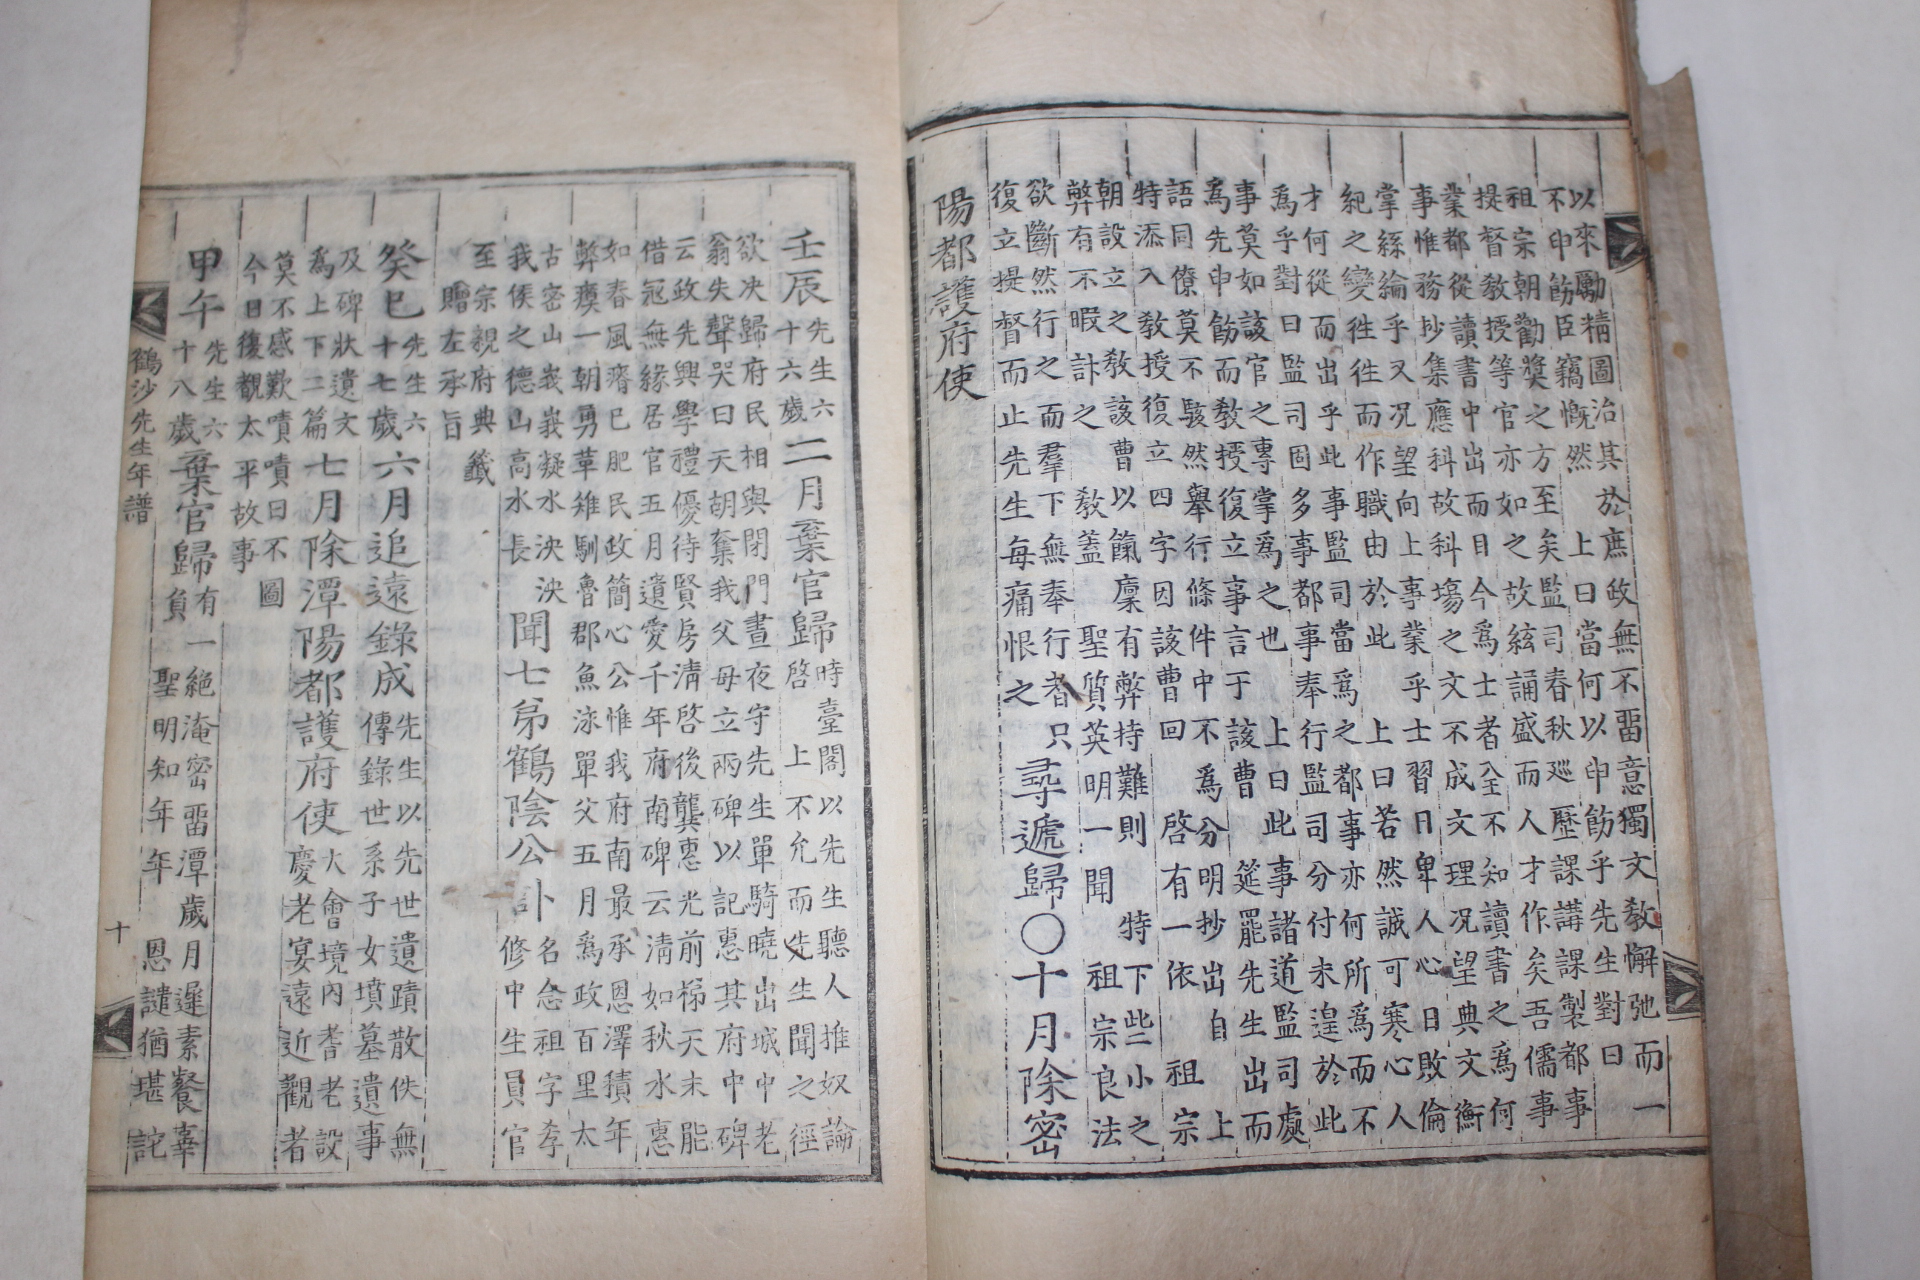 以來勵精圖治其於庶政無不畱意獨文敎懈弛而一
不申飭臣竊慨然　上曰當何以申飭乎先生對曰
祖宗朝勸奬之方至矣監司春秋廵歷課講課製都事
提督敎授等官亦如之故絃誦盛而人才作矣吾儒事
業都從讀書中出而目今爲士者全不知讀書之爲何
事惟務抄集應科故科塲之文不成文理况望典文衡
掌絲綸乎又况望向上事業乎士習日卑人心日敗倫
紀之變徃徃而作職由於此　上曰若然誠可寒心人
才何從而出乎此事監司當爲之都事亦何所爲而不
爲乎對曰監司固多事都事奉行監司分付未遑於此
事莫如該官之專掌爲之也　上曰此事諸道監司處
爲先申飭而敎授復立事言于　該曹　筵罷先生出而
語同僚莫不駭然舉行條件中不爲分明抄出自　上
特添入敎授復立四字因該曹回　啓有一依　祖宗
朝設立之敎該曹以餼廩有弊持難則　特下些小之
弊有不暇計之　敎盖　聖質英明一聞　祖宗良法
欲斷然行之而羣下無奉行者只
復立提督而止先生每痛恨之
尋遞歸〇十月除密
陽都護府使
壬辰
先生六
十六歲
二月棄官歸
時臺閣以先生聽人推奴論
啓　上不允而先生聞之徑
欲决歸府民相與閉門晝夜守先生單騎曉出城中老
翁失聲哭曰天朝奪我父母立兩碑以記惠其府中碑
云政先興學禮優待賢房淸啓後龔惠光前梯天未能
借冦無緣居官五月遺愛千年府南碑云淸如秋水惠
如春風瘠已肥民政簡心公惟我府南最承恩澤積年
弊瘼一朝勇革雉馴魯郡魚泳單父五月爲政百里太
古密山峩峩凝水泱泱
我侯之德山高水長
聞七弟鶴陰公訃
名念祖字孝
修中生員官
至宗親府典籤
贈左承旨
癸巳
先生六
十七歲
六月追遠錄成
先生以先世遺蹟散佚無
傳錄世系子女墳墓遺事
及碑狀遺文
爲上下二篇
七月除潭陽都護府使
大會境內耆老設
慶老宴遠近觀者
莫不感歎嘖嘖曰不圖
今日復觀太平故事
甲午
先生六
十八歲
棄官歸
有一絶淹密畱潭歲月遲素餐辜
負　聖明知年年　恩譴猶堪詫
鶴沙先生年譜　十